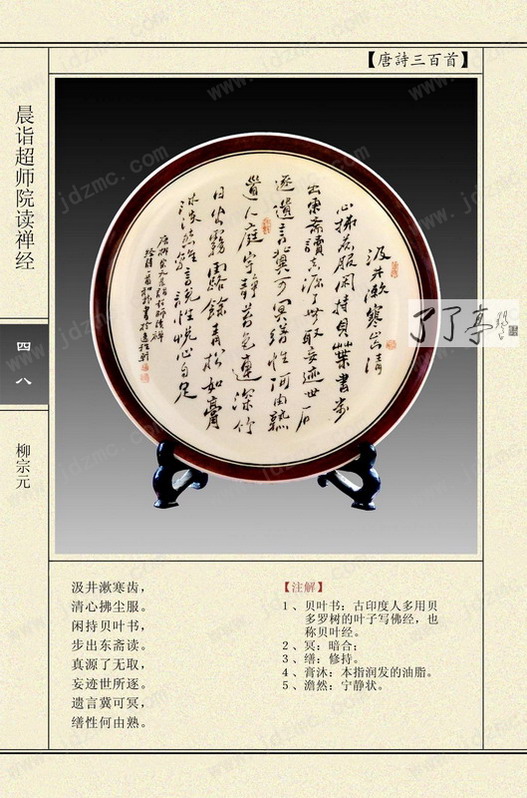 【唐詩三百首】
晨诣超师院读禅经
四八
柳宗元
汲井漱寒齿清
心拂尘服閑持貝葉書步
出東齋讀真源了無取妄迹世所
逐遺言冀可冥繕性何由熟
道人庭宇靜苔色連深竹
日出霧露餘青松如膏
沐澹然離言說悟悅心自足
了了亭
汲井漱寒齿,
清心拂尘服。
闲持贝叶书,
步出东斋读。
真源了无取,
妄迹世所逐。
遗言冀可冥,
缮性何由熟。
【注解】
1、贝叶书：古印度人多用贝
多罗树的叶子写佛经，也
称贝叶经。
2、冥：暗合；
3、缮：修持。
4、膏沐：本指润发的油脂。
5、澹然：宁静状。
www.jdzmc.com